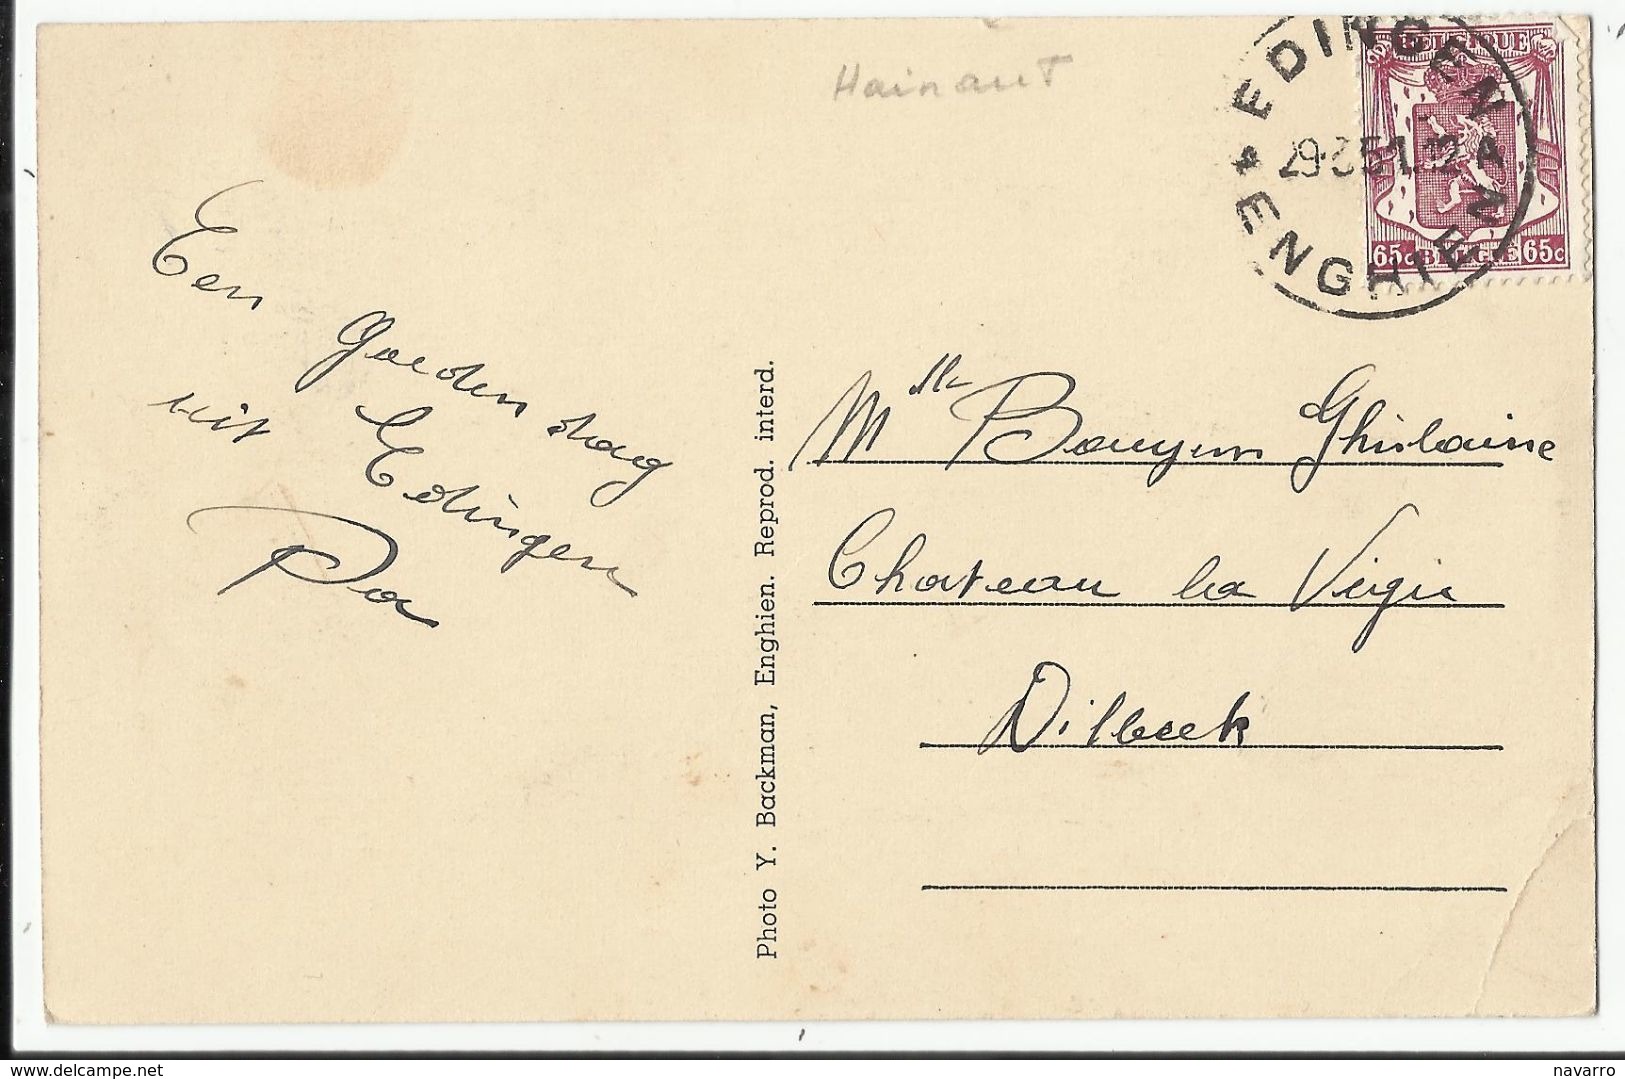 Hainaut
EDINGEN
ENGHIEN
A
BELGIQUE
65c BELGIË 65c
Een
goeden dag
uit Edingen
Pa
Photo Y. Backman, Enghien. Reprod. interd.
Mlle Ghislaine
Chateau la Vigie
Dilbeek
www.delcampe.net
navarro